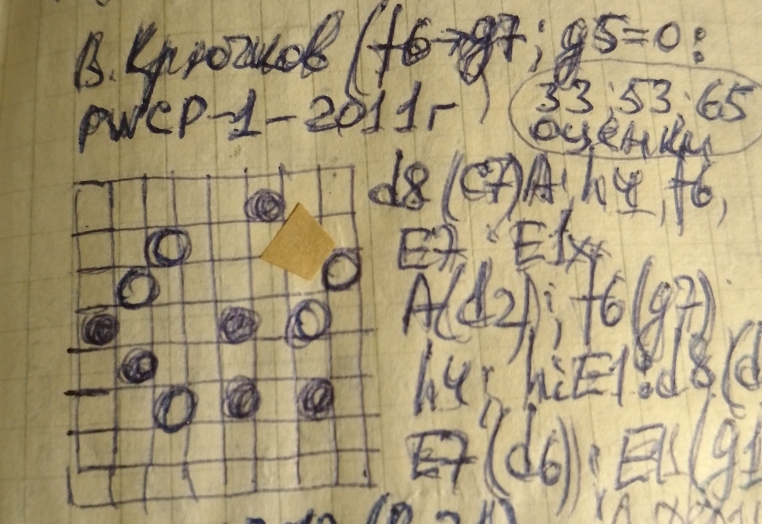 В. Крючков (f6→g7; g5=0:
PWCP-1-2011г
33; 53; 65
оценки
d8(c7)A; h4, f6,
E7: E1x
A(d2); f6(g7)
h4; hiE1:d8(d
E7(d6): E1(g1